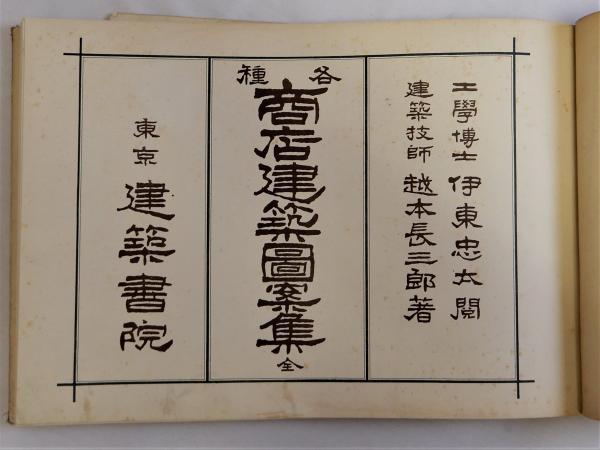 工學博士 伊東忠太閲
建築技師 越本長三郎著
各種
商店建築圖案集 全
東京 建築書院